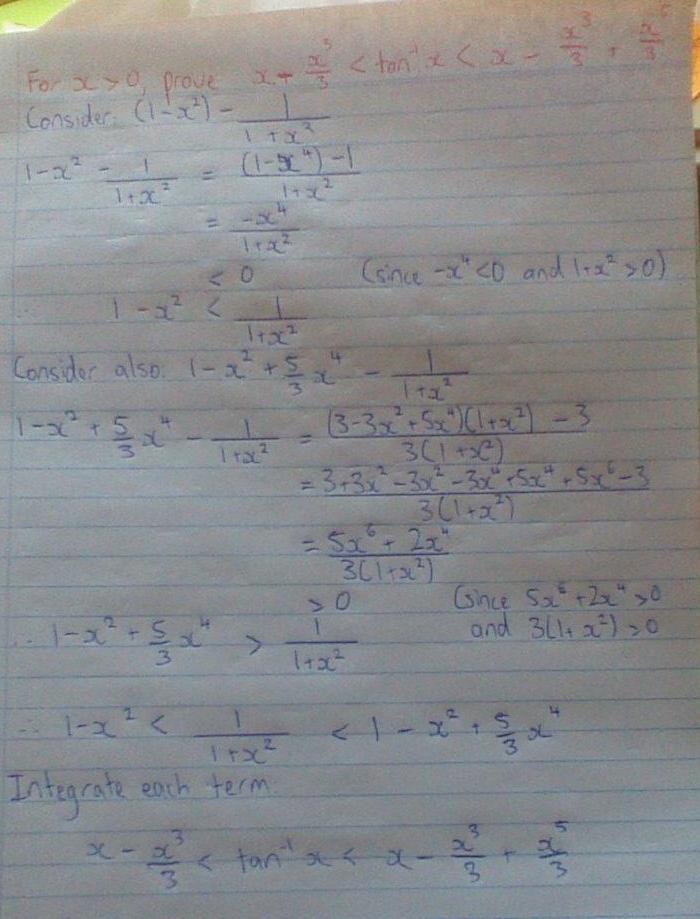 For x > 0, prove x - x³/3 < tan⁻¹ x < x - x³/3 + x⁵/3
Consider: (1-x²) - 1/(1+x²)
1-x² - 1/(1+x²) = ((1-x⁴)-1)/(1+x²)
= -x⁴/(1+x²)
< 0 (since -x⁴<0 and 1+x²>0)
∴ 1-x² < 1/(1+x²)
Consider also: 1-x²+5/3 x⁴ - 1/(1+x²)
1-x²+5/3 x⁴ - 1/(1+x²) = ((3-3x²+5x⁴)(1+x²) - 3)/(3(1+x²))
= (3+3x²-3x²-3x⁴+5x⁴+5x⁶-3)/(3(1+x²))
= (5x⁶+2x⁴)/(3(1+x²))
> 0 (since 5x⁶+2x⁴>0
∴ 1-x²+5/3 x⁴ > 1/(1+x²) and 3(1+x²)>0
∴ 1-x² < 1/(1+x²) < 1-x²+5/3 x⁴
Integrate each term:
x - x³/3 < tan⁻¹ x < x - x³/3 + x⁵/3